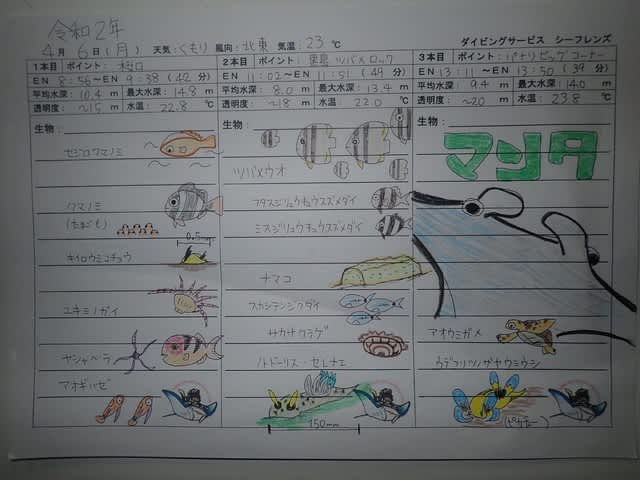 令和2年
4月 6日(月) 天気:くもり 風向:北東 気温:23℃
ダイビングサービス シーフレンズ
1本目 ポイント:桜口
EN 8:56～EN 9:38 (42分)
平均水深:10.4m 最大水深:14.8m
透明度:～15m 水温:22.8℃
生物:
セジロクマノミ
クマノミ
(たまごも)
0.5mm
キイロウミコチョウ
ユキミノガイ
ヤシャベラ
アオギハゼ
2本目 ポイント:黒島 ツバメロック
EN 11:02～EN 11:51 (49分)
平均水深:8.0m 最大水深:13.4m
透明度:～18m 水温:22.0℃
生物:
ツバメウオ
フタスジリュウキュウスズメダイ
ミスジリュウキュウスズメダイ
ナマコ
スカシテンジクダイ
サカサクラゲ
ノトドーリス・セレナエ
150mm
3本目 ポイント:パナリビッグコーナー
EN 13:11～EN 13:50 (39分)
平均水深:9.4m 最大水深:14.0m
透明度:～20m 水温:23.8℃
生物:
マンタ
アオウミガメ
ウデフリツノザヤウミウシ
(ピカチュー)